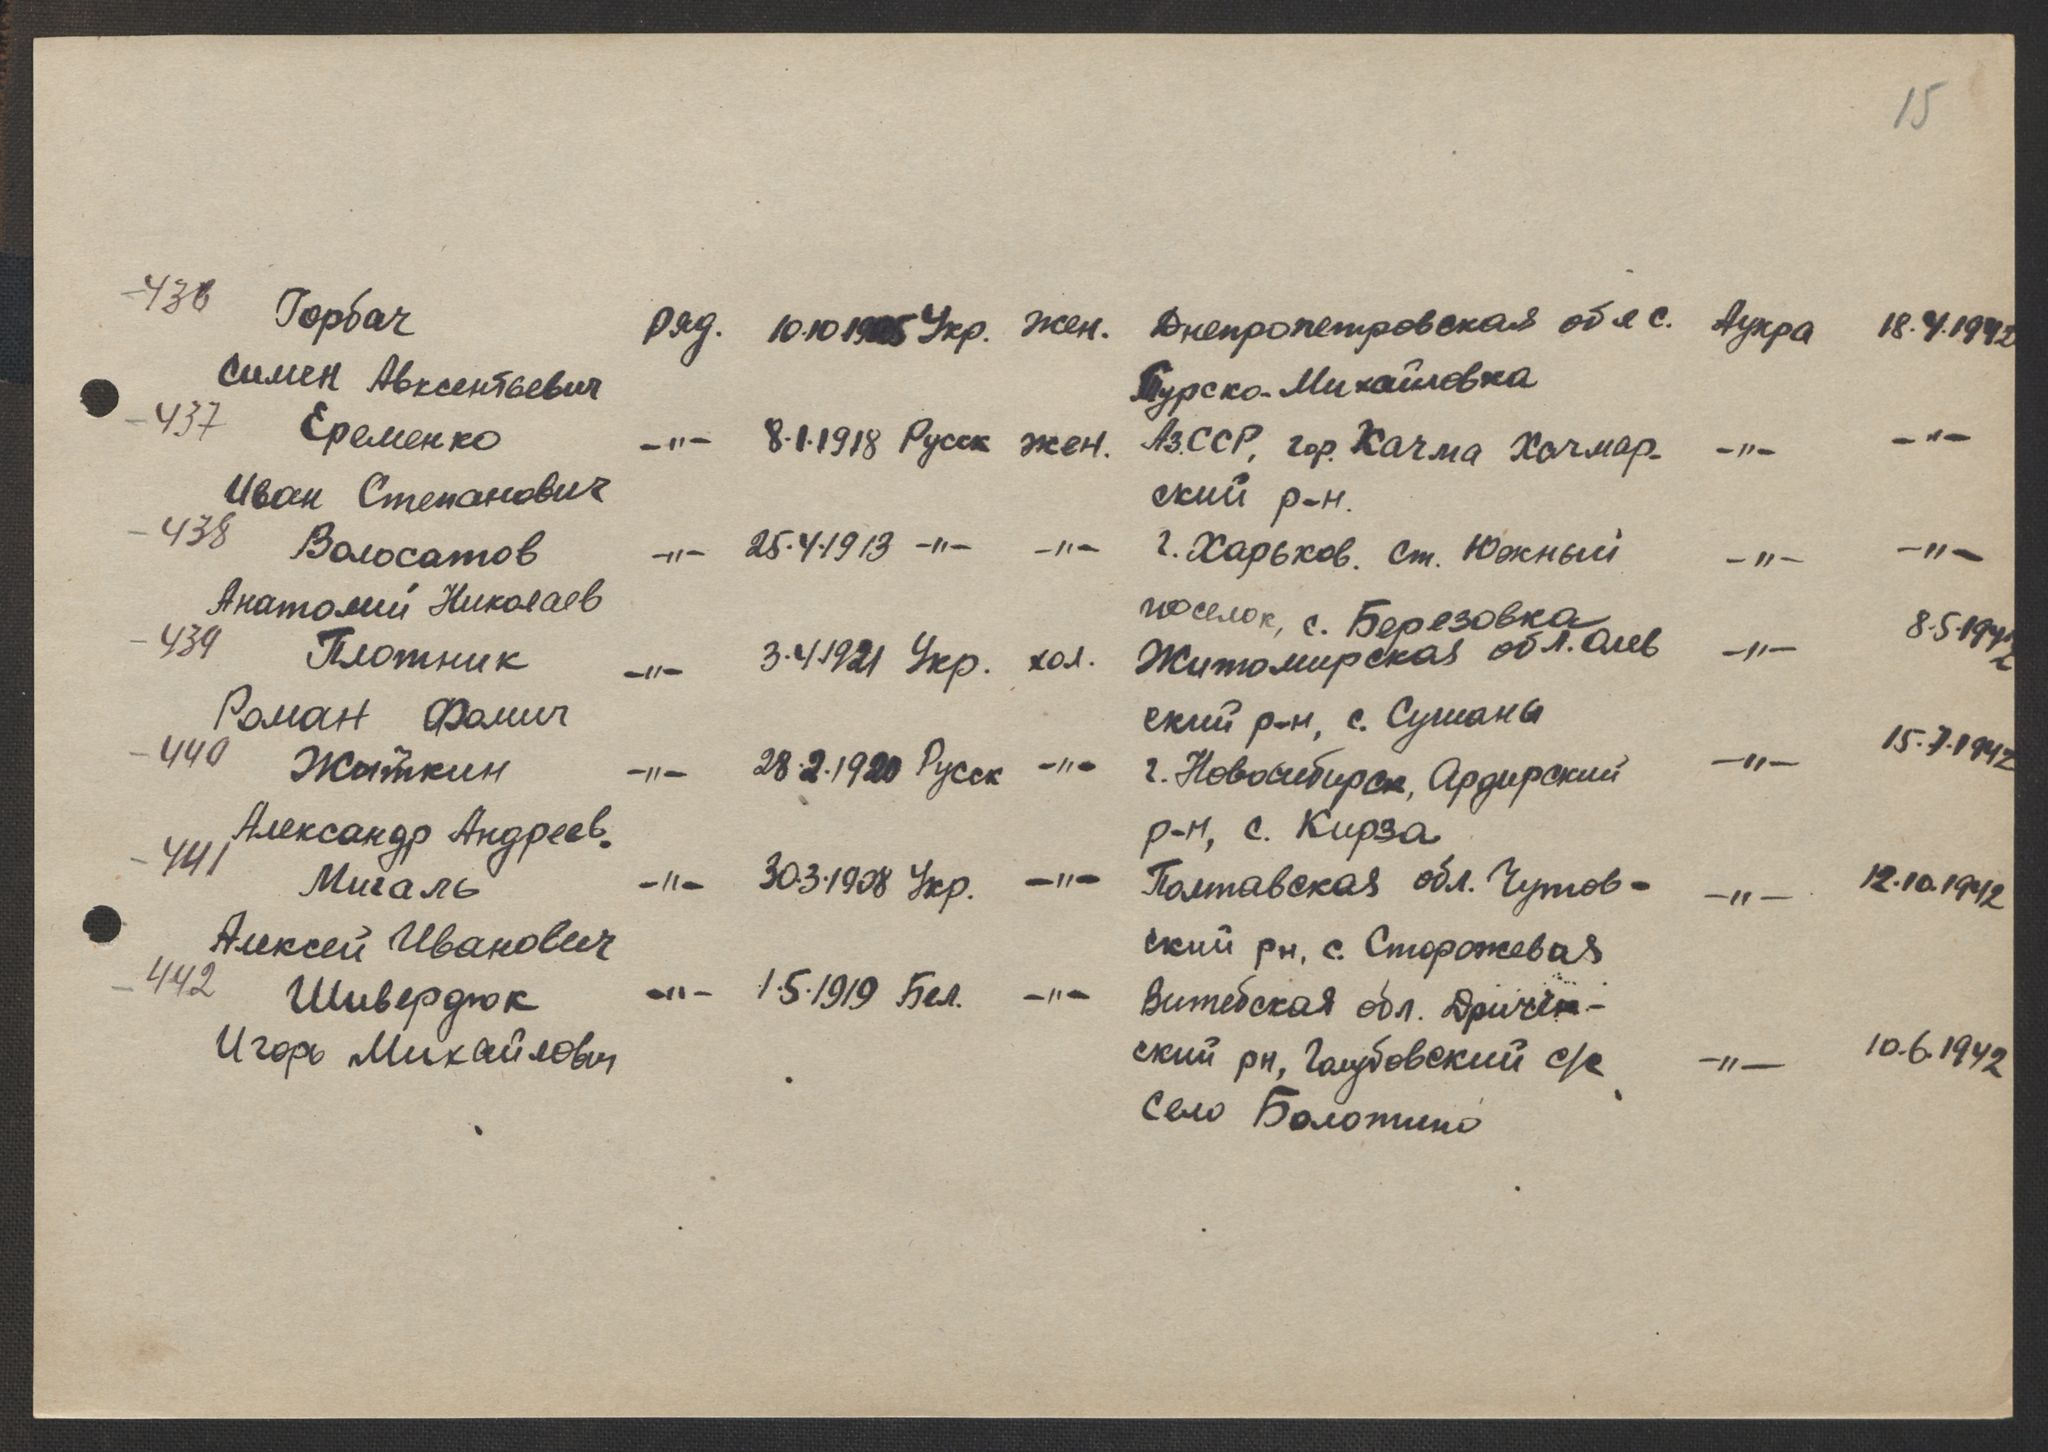 15
436 Горбач ряд. 10.10.1905 Укр. жен. Днепропетровская обл с. Аукра 18.4.1942
Симен Авксентьевич Турско-Михайловка
437 Еременко -"- 8.1.1918 Русск жен. Аз.ССР, гор. Качма Хачмар- -"- -"-
Иван Степанович ский р-н.
438 Волосатов -"- 25.4.1913 -"- -"- г. Харьков. ст. Южный -"- -"-
Анатолий Николаев поселок, с. Березовка
439 Плотник -"- 3.4.1921 Укр. хол. Житомирская обл. Олев -"- 8.5.1942
Роман Фомич ский р-н, с. Сушаны
440 Житкин -"- 28.2.1920 Русск -"- г. Новосибирск, Ордирский -"- 15.7.1942
Александр Андреев. р-н, с. Кирза
441 Мигаль -"- 30.3.1908 Укр. -"- Полтавская обл. Чутов- -"- 12.10.1942
Алексей Иванович ский рн, с. Сторожевая
442 Шивердюк -"- 1.5.1919 Бел. -"- Витебская обл. Дричин-
Игорь Михайлович ский рн, Голубовский с/с -"- 10.6.1942
село Болотино